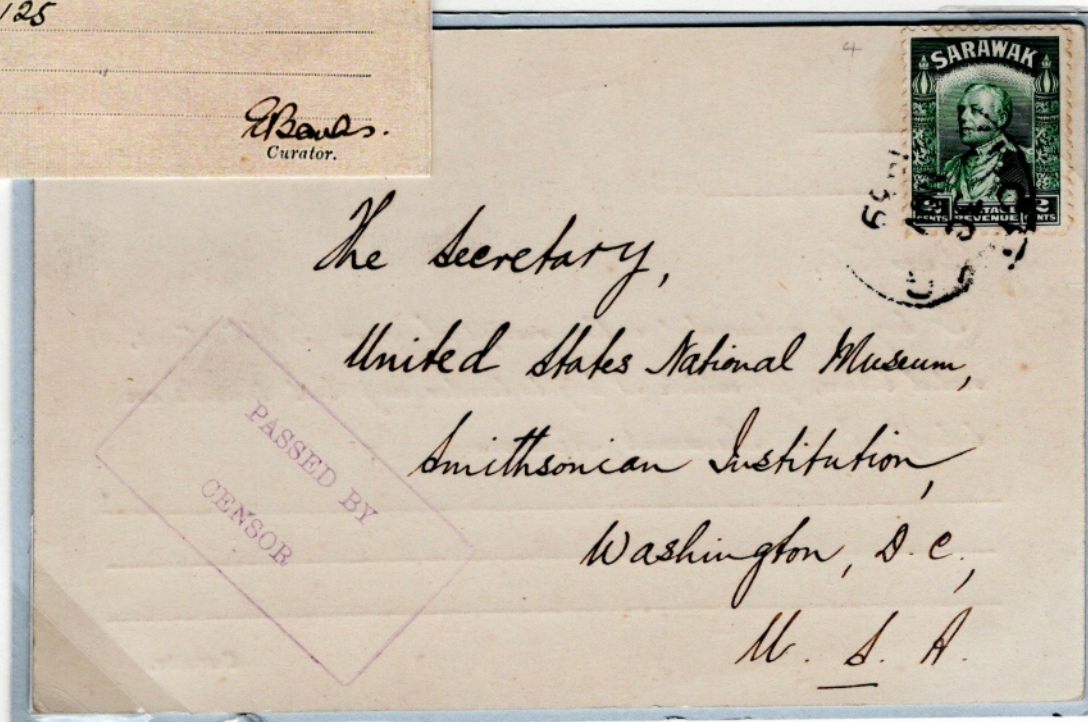 125
E Banks.
Curator.
SARAWAK
2 CENTS POSTAGE REVENUE 2 CENTS
The Secretary,
United States National Museum,
Smithsonian Institution,
Washington, D.C.,
U. S. A.
PASSED BY
CENSOR